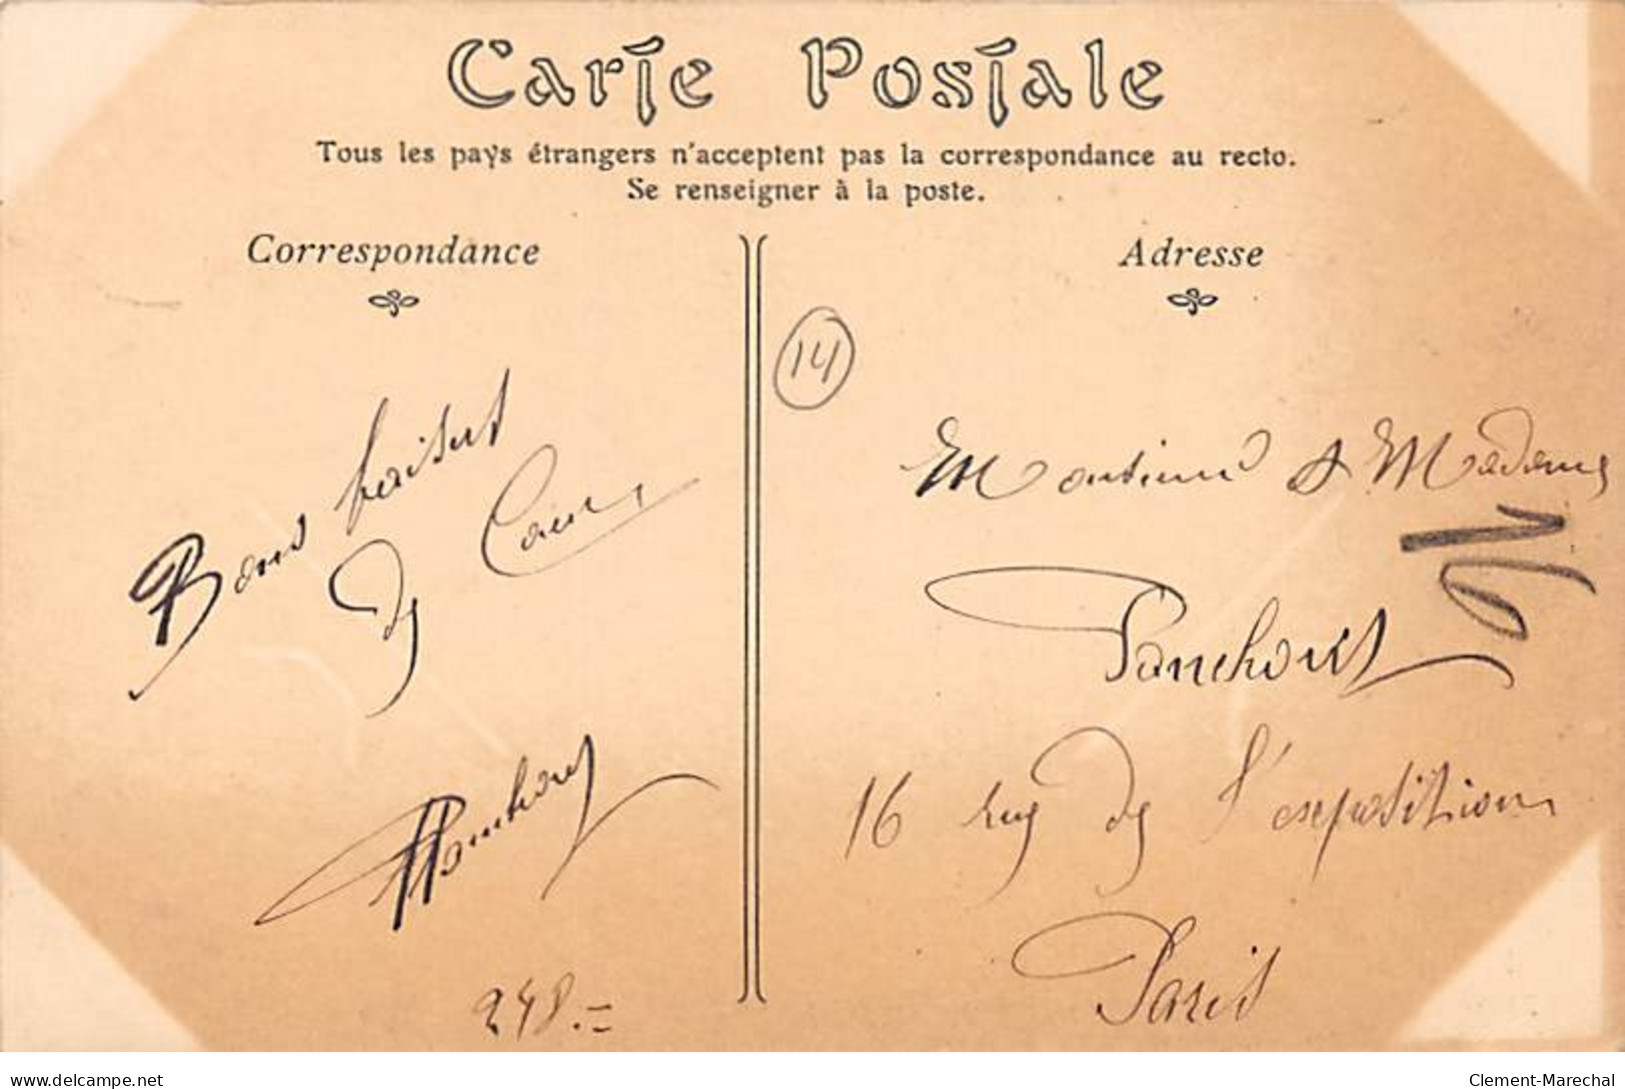 Carte Postale
Tous les pays étrangers n'acceptent pas la correspondance au recto.
Se renseigner à la poste.
Correspondance
Bons baisers
de Caen
248.=
Adresse
14
Monsieur & Madame
16 rue de l'exposition
Paris
delcampe.net
Clement-Marechal